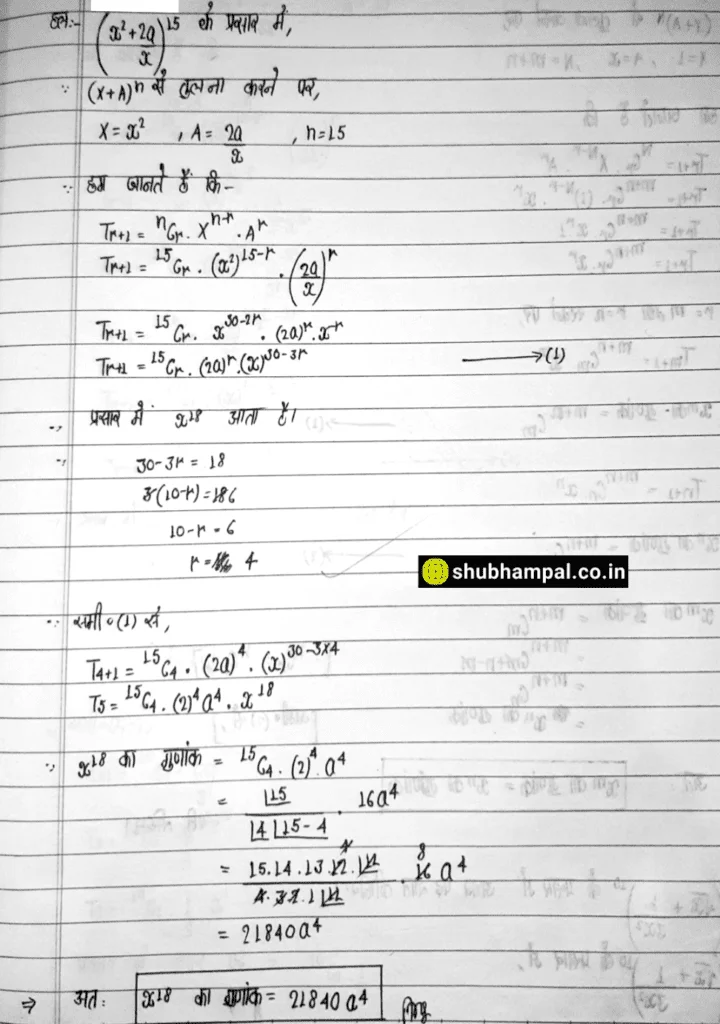 हल:- (x²+2a/x)^15 के प्रसार में,
∵ (x+A)^n से तुलना करने पर,
X = x² , A = 2a/x , n=15
∵ हम जानते हैं कि-
Tr+1 = nCr . X^n-r . A^r
Tr+1 = 15Cr . (x²)^15-r . (2a/x)^r
Tr+1 = 15Cr . x^30-2r . (2a)^r . x^-r
Tr+1 = 15Cr . (2a)^r . (x)^30-3r ⟶(1)
∵ प्रसार में x^18 आता है।
∵ 30-3r = 18
3(10-r) = 18 6
10-r = 6
r = 4
shubhampal.co.in
∵ समी०(1) से,
T4+1 = 15C4 . (2a)^4 . (x)^30-3x4
T5 = 15C4 . (2)^4 a^4 . x^18
∵ x^18 का गुणांक = 15C4 . (2)^4 . a^4
= |15 / |4 |15-4 . 16a^4
= 15.14.13.12.|11 / 4.3.2.1 |11 . 16 8 a^4
= 21840a^4
⇒ अत: x^18 का गुणांक = 21840 a^4